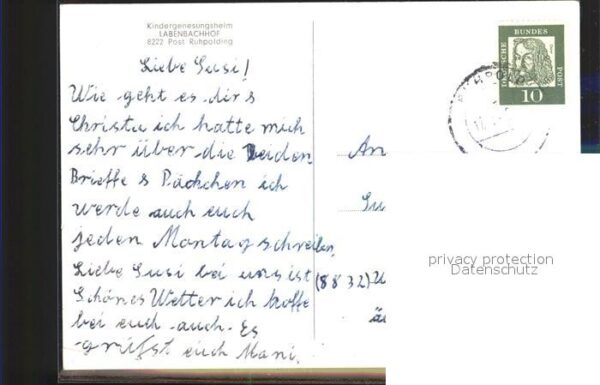 Kindergenesungsheim
LABENBACHHOF
8222 Post Ruhpolding
Liebe Susi!
Wie geht es dir &
Christa ich hatte mich
sehr über die beiden
Brieffe & Päckchen ich
werde auch euch
jeden Montag schreiben.
Liebe Susi bei uns ist
Schönes Wetter ich hoffe
bei euch auch. Es
grüßt euch Mani.
DEUTSCHE BUNDES POST
10
RUHPOLD
An
Su
(8832) W
privacy protection
Datenschutz